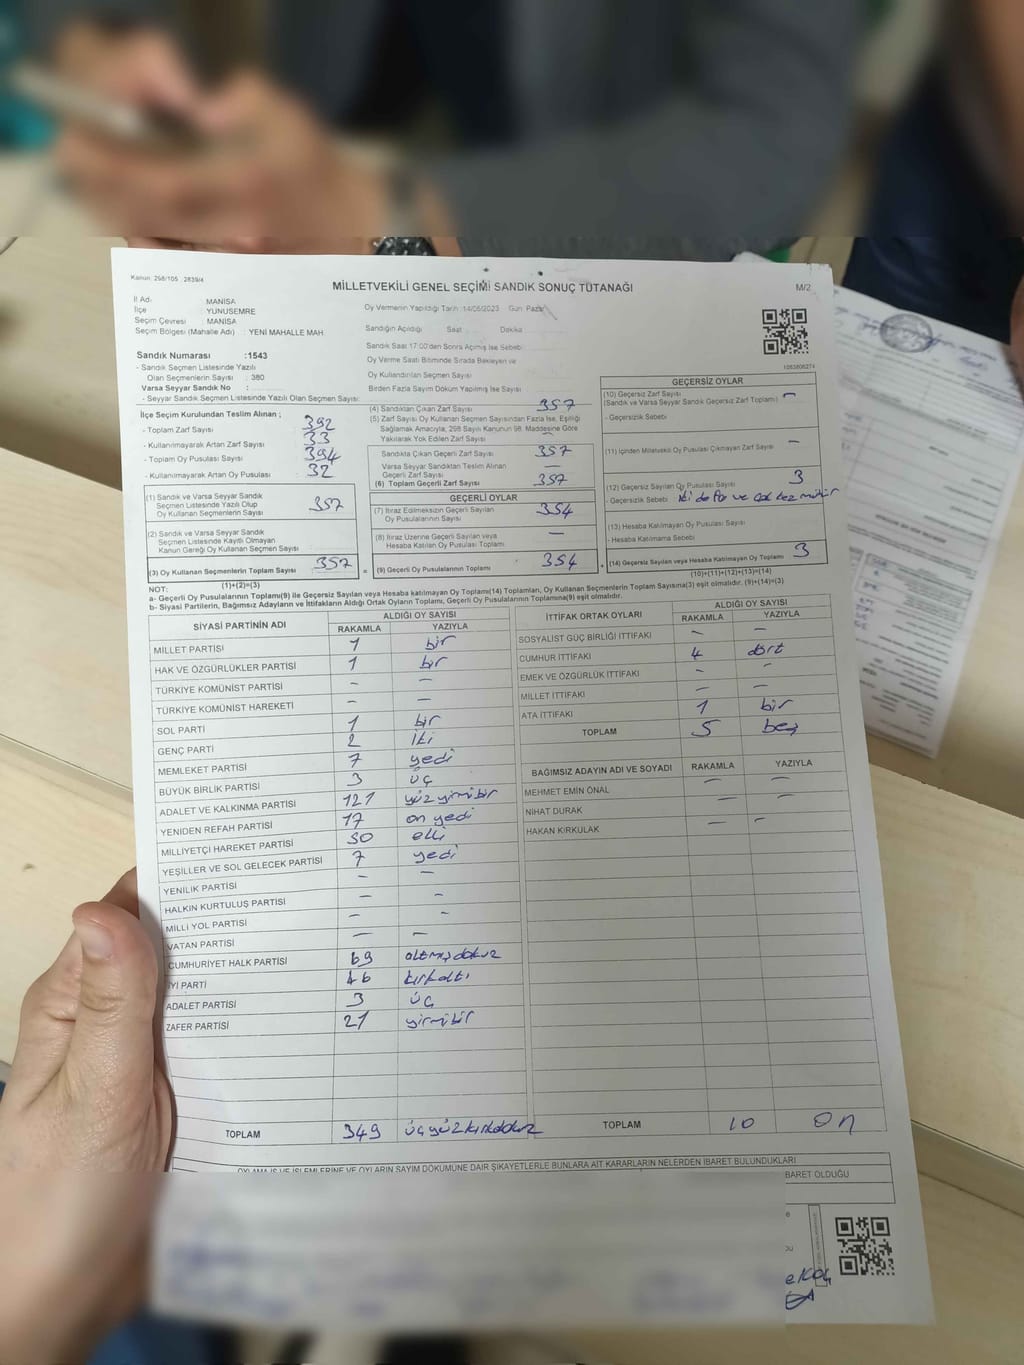 Kanun: 298/105 , 2839/4
MİLLETVEKİLİ GENEL SEÇİMİ SANDIK SONUÇ TUTANAĞI
M/2
İl Adı : MANİSA
İlçe : YUNUSEMRE
Seçim Çevresi : MANİSA
Seçim Bölgesi (Mahalle Adı) : YENİ MAHALLE MAH.
Sandık Numarası :1543
- Sandık Seçmen Listesinde Yazılı
Olan Seçmenlerin Sayısı : 380
Varsa Seyyar Sandık No :
- Seyyar Sandık Seçmen Listesinde Yazılı Olan Seçmen Sayısı:
Oy Vermenin Yapıldığı Tarih :14/05/2023 Gün: Pazar
Sandığın Açıldığı Saat Dakika
Sandık Saat 17:00'den Sonra Açılmış İse Sebebi:
Oy Verme Saati Bitiminde Sırada Bekleyen ve
Oy Kullandırılan Seçmen Sayısı
Birden Fazla Sayım Döküm Yapılmış İse Sayısı
1063606274
İlçe Seçim Kurulundan Teslim Alınan ;
- Toplam Zarf Sayısı 392
- Kullanılmayarak Artan Zarf Sayısı 33
- Toplam Oy Pusulası Sayısı 394
- Kullanılmayarak Artan Oy Pusulası 32
(1) Sandık ve Varsa Seyyar Sandık
Seçmen Listesinde Yazılı Olup
Oy Kullanan Seçmenlerin Sayısı 357
(2) Sandık ve Varsa Seyyar Sandık
Seçmen Listesinde Kayıtlı Olmayan
Kanun Gereği Oy Kullanan Seçmen Sayısı
(3) Oy Kullanan Seçmenlerin Toplam Sayısı 357
(1)+(2)=(3)
(4) Sandıktan Çıkan Zarf Sayısı 357
(5) Zarf Sayısı Oy Kullanan Seçmen Sayısından Fazla İse, Eşitliği
Sağlamak Amacıyla, 298 Sayılı Kanunun 98. Maddesine Göre
Yakılarak Yok Edilen Zarf Sayısı —
Sandıkta Çıkan Geçerli Zarf Sayısı 357
Varsa Seyyar Sandıktan Teslim Alınan
Geçerli Zarf Sayısı —
(6) Toplam Geçerli Zarf Sayısı 357
GEÇERLİ OYLAR
(7) İtiraz Edilmeksizin Geçerli Sayılan
Oy Pusulalarının Sayısı 354
(8) İtiraz Üzerine Geçerli Sayılan veya
Hesaba Katılan Oy Pusulası Toplamı —
= (9) Geçerli Oy Pusulalarının Toplamı 354
GEÇERSİZ OYLAR
(10) Geçersiz Zarf Sayısı —
(Sandık ve Varsa Seyyar Sandık Geçersiz Zarf Toplamı)
- Geçersizlik Sebebi
(11) İçinden Milletvekili Oy Pusulası Çıkmayan Zarf Sayısı —
(12) Geçersiz Sayılan Oy Pusulası Sayısı 3
- Geçersizlik Sebebi iki defa ve çok kez mühür
(13) Hesaba Katılmayan Oy Pusulası Sayısı
- Hesaba Katılmama Sebebi
+ (14) Geçersiz Sayılan veya Hesaba Katılmayan Oy Toplamı 3
(10)+(11)+(12)+(13)=(14)
NOT:
a- Geçerli Oy Pusulalarının Toplamı(9) ile Geçersiz Sayılan veya Hesaba katılmayan Oy Toplamı(14) Toplamları, Oy Kullanan Seçmenlerin Toplam Sayısına(3) eşit olmalıdır. (9)+(14)=(3)
b- Siyasi Partilerin, Bağımsız Adayların ve İttifakların Aldığı Ortak Oyların Toplamı, Geçerli Oy Pusulalarının Toplamına(9) eşit olmalıdır.
SİYASİ PARTİNİN ADI ALDIĞI OY SAYISI
RAKAMLA YAZIYLA
MİLLET PARTİSİ 1 bir
HAK VE ÖZGÜRLÜKLER PARTİSİ 1 bir
TÜRKİYE KOMÜNİST PARTİSİ — —
TÜRKİYE KOMÜNİST HAREKETİ — —
SOL PARTİ 1 bir
GENÇ PARTİ 2 İki
MEMLEKET PARTİSİ 7 yedi
BÜYÜK BİRLİK PARTİSİ 3 üç
ADALET VE KALKINMA PARTİSİ 121 yüz yirmi bir
YENİDEN REFAH PARTİSİ 17 on yedi
MİLLİYETÇİ HAREKET PARTİSİ 50 elli
YEŞİLLER VE SOL GELECEK PARTİSİ 7 yedi
YENİLİK PARTİSİ — —
HALKIN KURTULUŞ PARTİSİ — —
MİLLİ YOL PARTİSİ — —
VATAN PARTİSİ — —
CUMHURİYET HALK PARTİSİ 69 altmış dokuz
İYİ PARTİ 46 kırkaltı
ADALET PARTİSİ 3 üç
ZAFER PARTİSİ 21 yirmibir
TOPLAM 349 üçyüzkırkdokuz
İTTİFAK ORTAK OYLARI ALDIĞI OY SAYISI
RAKAMLA YAZIYLA
SOSYALİST GÜÇ BİRLİĞİ İTTİFAKI — —
CUMHUR İTTİFAKI 4 dört
EMEK VE ÖZGÜRLÜK İTTİFAKI — —
MİLLET İTTİFAKI — —
ATA İTTİFAKI 1 bir
TOPLAM 5 beş
BAĞIMSIZ ADAYIN ADI VE SOYADI RAKAMLA YAZIYLA
MEHMET EMİN ÖNAL — —
NİHAT DURAK — —
HAKAN KIRKULAK — —
TOPLAM 10 on
OYLAMA İŞ VE İŞLEMLERİNE VE OYLARIN SAYIM DÖKÜMÜNE DAİR ŞİKAYETLERLE BUNLARA AİT KARARLARIN NELERDEN İBARET BULUNDUKLARI
BARET OLDUĞU